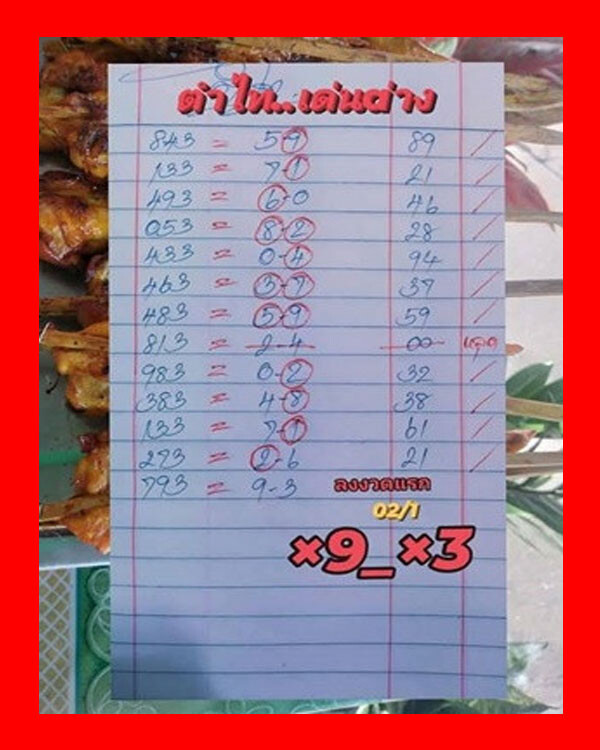 ตำไท..เด่นต่าง
843 = 5-9 89 /
133 = 7-1 21 /
493 = 6-0 46 /
053 = 8-2 28 /
433 = 0-4 94 /
463 = 3-7 37 /
483 = 5-9 59 /
813 = 2-4 00 หลุด
983 = 0-2 32 /
383 = 4-8 38 /
133 = 7-1 61 /
273 = 2-6 21 /
793 = 9-3 ลงงวดแรก
02/1
×9_×3